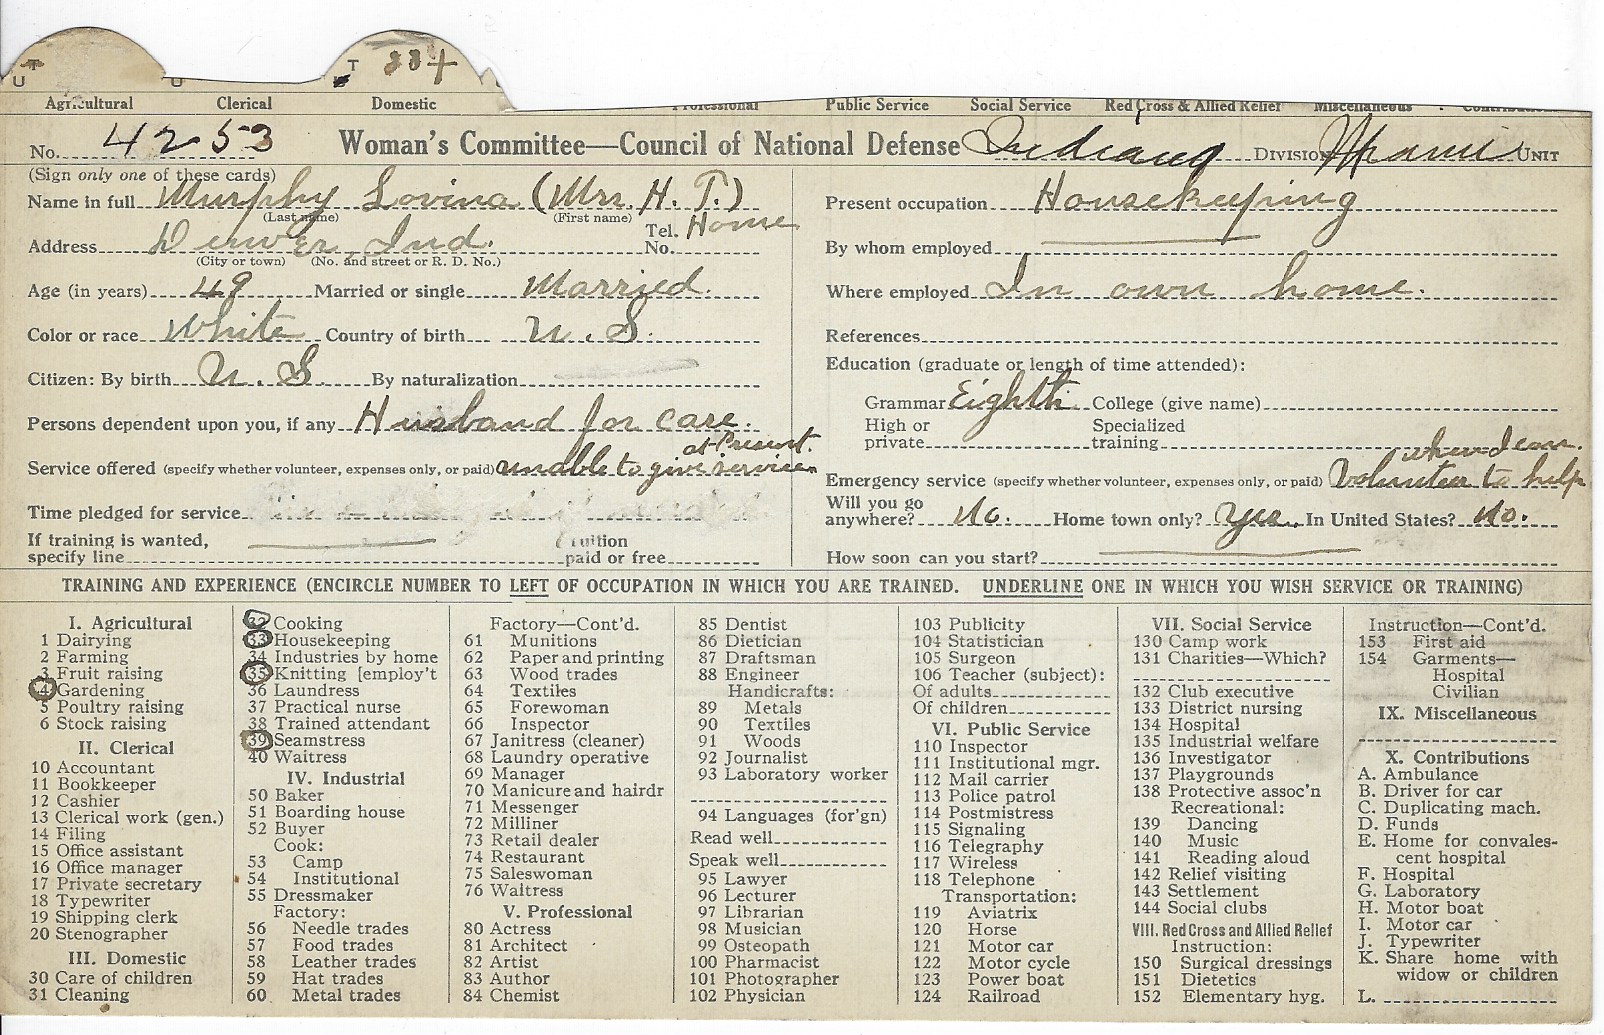 U T U T 334
Agricultural Clerical Domestic Professional Public Service Social Service Red Cross & Allied Relief Miscellaneous Contributions
No. 4253 Woman's Committee—Council of National Defense Indiana DIVISION Miami UNIT
(Sign only one of these cards)
Name in full Murphy Lovina (Mrs. H. T.)
(Last name) (First name)
Address Denver, Ind. Tel. No. Home
(City or town) (No. and street or R. D. No.)
Age (in years) 49 Married or single Married.
Color or race White Country of birth U. S.
Citizen: By birth U. S. By naturalization
Persons dependent upon you, if any Husband for care.
Service offered (specify whether volunteer, expenses only, or paid) unable to give service at Present.
Time pledged for service
If training is wanted, specify line Tuition paid or free
Present occupation Housekeeping
By whom employed
Where employed In own home.
References
Education (graduate or length of time attended):
Grammar Eighth College (give name)
High or private Specialized training
Emergency service (specify whether volunteer, expenses only, or paid) Volunteer to help when I can.
Will you go anywhere? No. Home town only? Yes. In United States? No.
How soon can you start?
TRAINING AND EXPERIENCE (ENCIRCLE NUMBER TO LEFT OF OCCUPATION IN WHICH YOU ARE TRAINED. UNDERLINE ONE IN WHICH YOU WISH SERVICE OR TRAINING)
I. Agricultural
1 Dairying
2 Farming
3 Fruit raising
4 Gardening
5 Poultry raising
6 Stock raising
II. Clerical
10 Accountant
11 Bookkeeper
12 Cashier
13 Clerical work (gen.)
14 Filing
15 Office assistant
16 Office manager
17 Private secretary
18 Typewriter
19 Shipping clerk
20 Stenographer
III. Domestic
30 Care of children
31 Cleaning
32 Cooking
33 Housekeeping
34 Industries by home
35 Knitting [employ't
36 Laundress
37 Practical nurse
38 Trained attendant
39 Seamstress
40 Waitress
IV. Industrial
50 Baker
51 Boarding house
52 Buyer
Cook:
53 Camp
54 Institutional
55 Dressmaker
Factory:
56 Needle trades
57 Food trades
58 Leather trades
59 Hat trades
60 Metal trades
Factory—Cont'd.
61 Munitions
62 Paper and printing
63 Wood trades
64 Textiles
65 Forewoman
66 Inspector
67 Janitress (cleaner)
68 Laundry operative
69 Manager
70 Manicure and hairdr
71 Messenger
72 Milliner
73 Retail dealer
74 Restaurant
75 Saleswoman
76 Waitress
V. Professional
80 Actress
81 Architect
82 Artist
83 Author
84 Chemist
85 Dentist
86 Dietician
87 Draftsman
88 Engineer
Handicrafts:
89 Metals
90 Textiles
91 Woods
92 Journalist
93 Laboratory worker
94 Languages (for'gn)
Read well
Speak well
95 Lawyer
96 Lecturer
97 Librarian
98 Musician
99 Osteopath
100 Pharmacist
101 Photographer
102 Physician
103 Publicity
104 Statistician
105 Surgeon
106 Teacher (subject):
Of adults
Of children
VI. Public Service
110 Inspector
111 Institutional mgr.
112 Mail carrier
113 Police patrol
114 Postmistress
115 Signaling
116 Telegraphy
117 Wireless
118 Telephone
Transportation:
119 Aviatrix
120 Horse
121 Motor car
122 Motor cycle
123 Power boat
124 Railroad
VII. Social Service
130 Camp work
131 Charities—Which?
132 Club executive
133 District nursing
134 Hospital
135 Industrial welfare
136 Investigator
137 Playgrounds
138 Protective assoc'n
Recreational:
139 Dancing
140 Music
141 Reading aloud
142 Relief visiting
143 Settlement
144 Social clubs
VIII. Red Cross and Allied Relief
Instruction:
150 Surgical dressings
151 Dietetics
152 Elementary hyg.
Instruction—Cont'd.
153 First aid
154 Garments—
Hospital
Civilian
IX. Miscellaneous
X. Contributions
A. Ambulance
B. Driver for car
C. Duplicating mach.
D. Funds
E. Home for convales-
cent hospital
F. Hospital
G. Laboratory
H. Motor boat
I. Motor car
J. Typewriter
K. Share home with
widow or children
L.